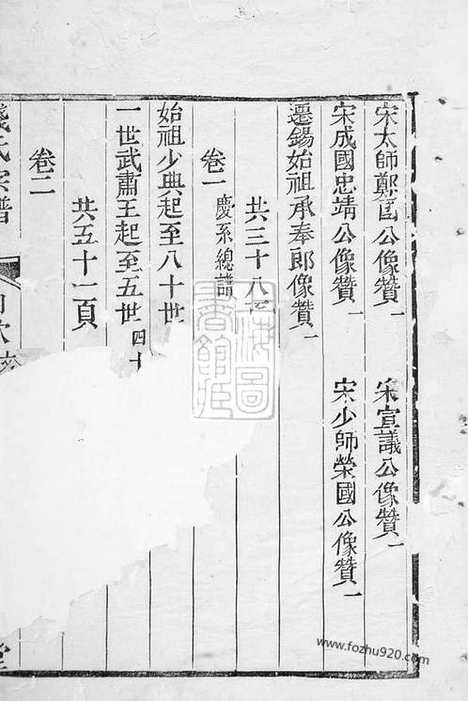 宋太師鄭國公像贊一
宋宣議公像贊一
宋成國忠靖公像贊一
宋少師榮國公像贊一
遷錫始祖承奉郎像贊一
共三十八頁
卷一
慶系總譜
始祖少典起至八十世
一世武肅王起至五世四十
共五十一頁
卷二
錢氏宗譜
目次
堂
www.fozhu920.com